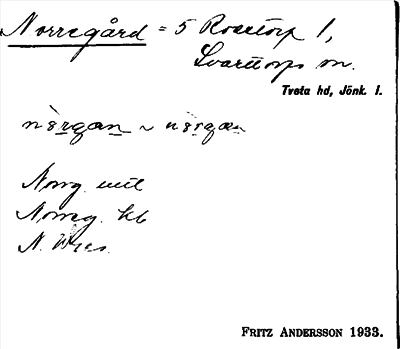 Norregård = 5 Rosetorp 1,
Svarttorps sn.
Tveta hd, Jönk. l.
nörgan ~ nörgan
Norrg. uttl
Norreg. kb
N.
FRITZ ANDERSSON 1933.